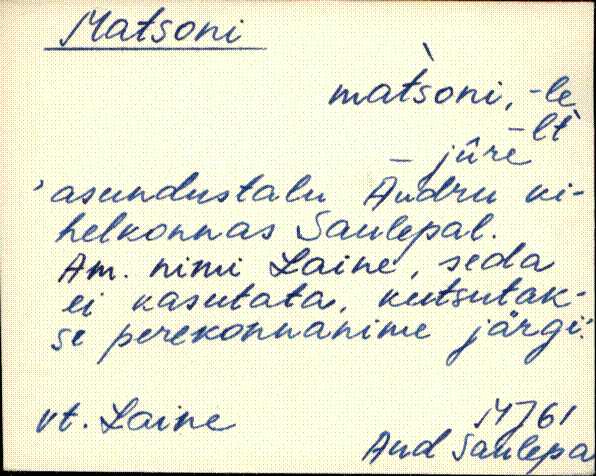 Matsoni
mat̀soni, -le
-lt
– jûre
'asundustalu Audru ki-
helkonnas Saulepal.
Am. nimi Laine, seda
ei kasutata, kutsutak-
se perekonnanime järgi.'
vt. Laine
MJ61
Aud Saulepa